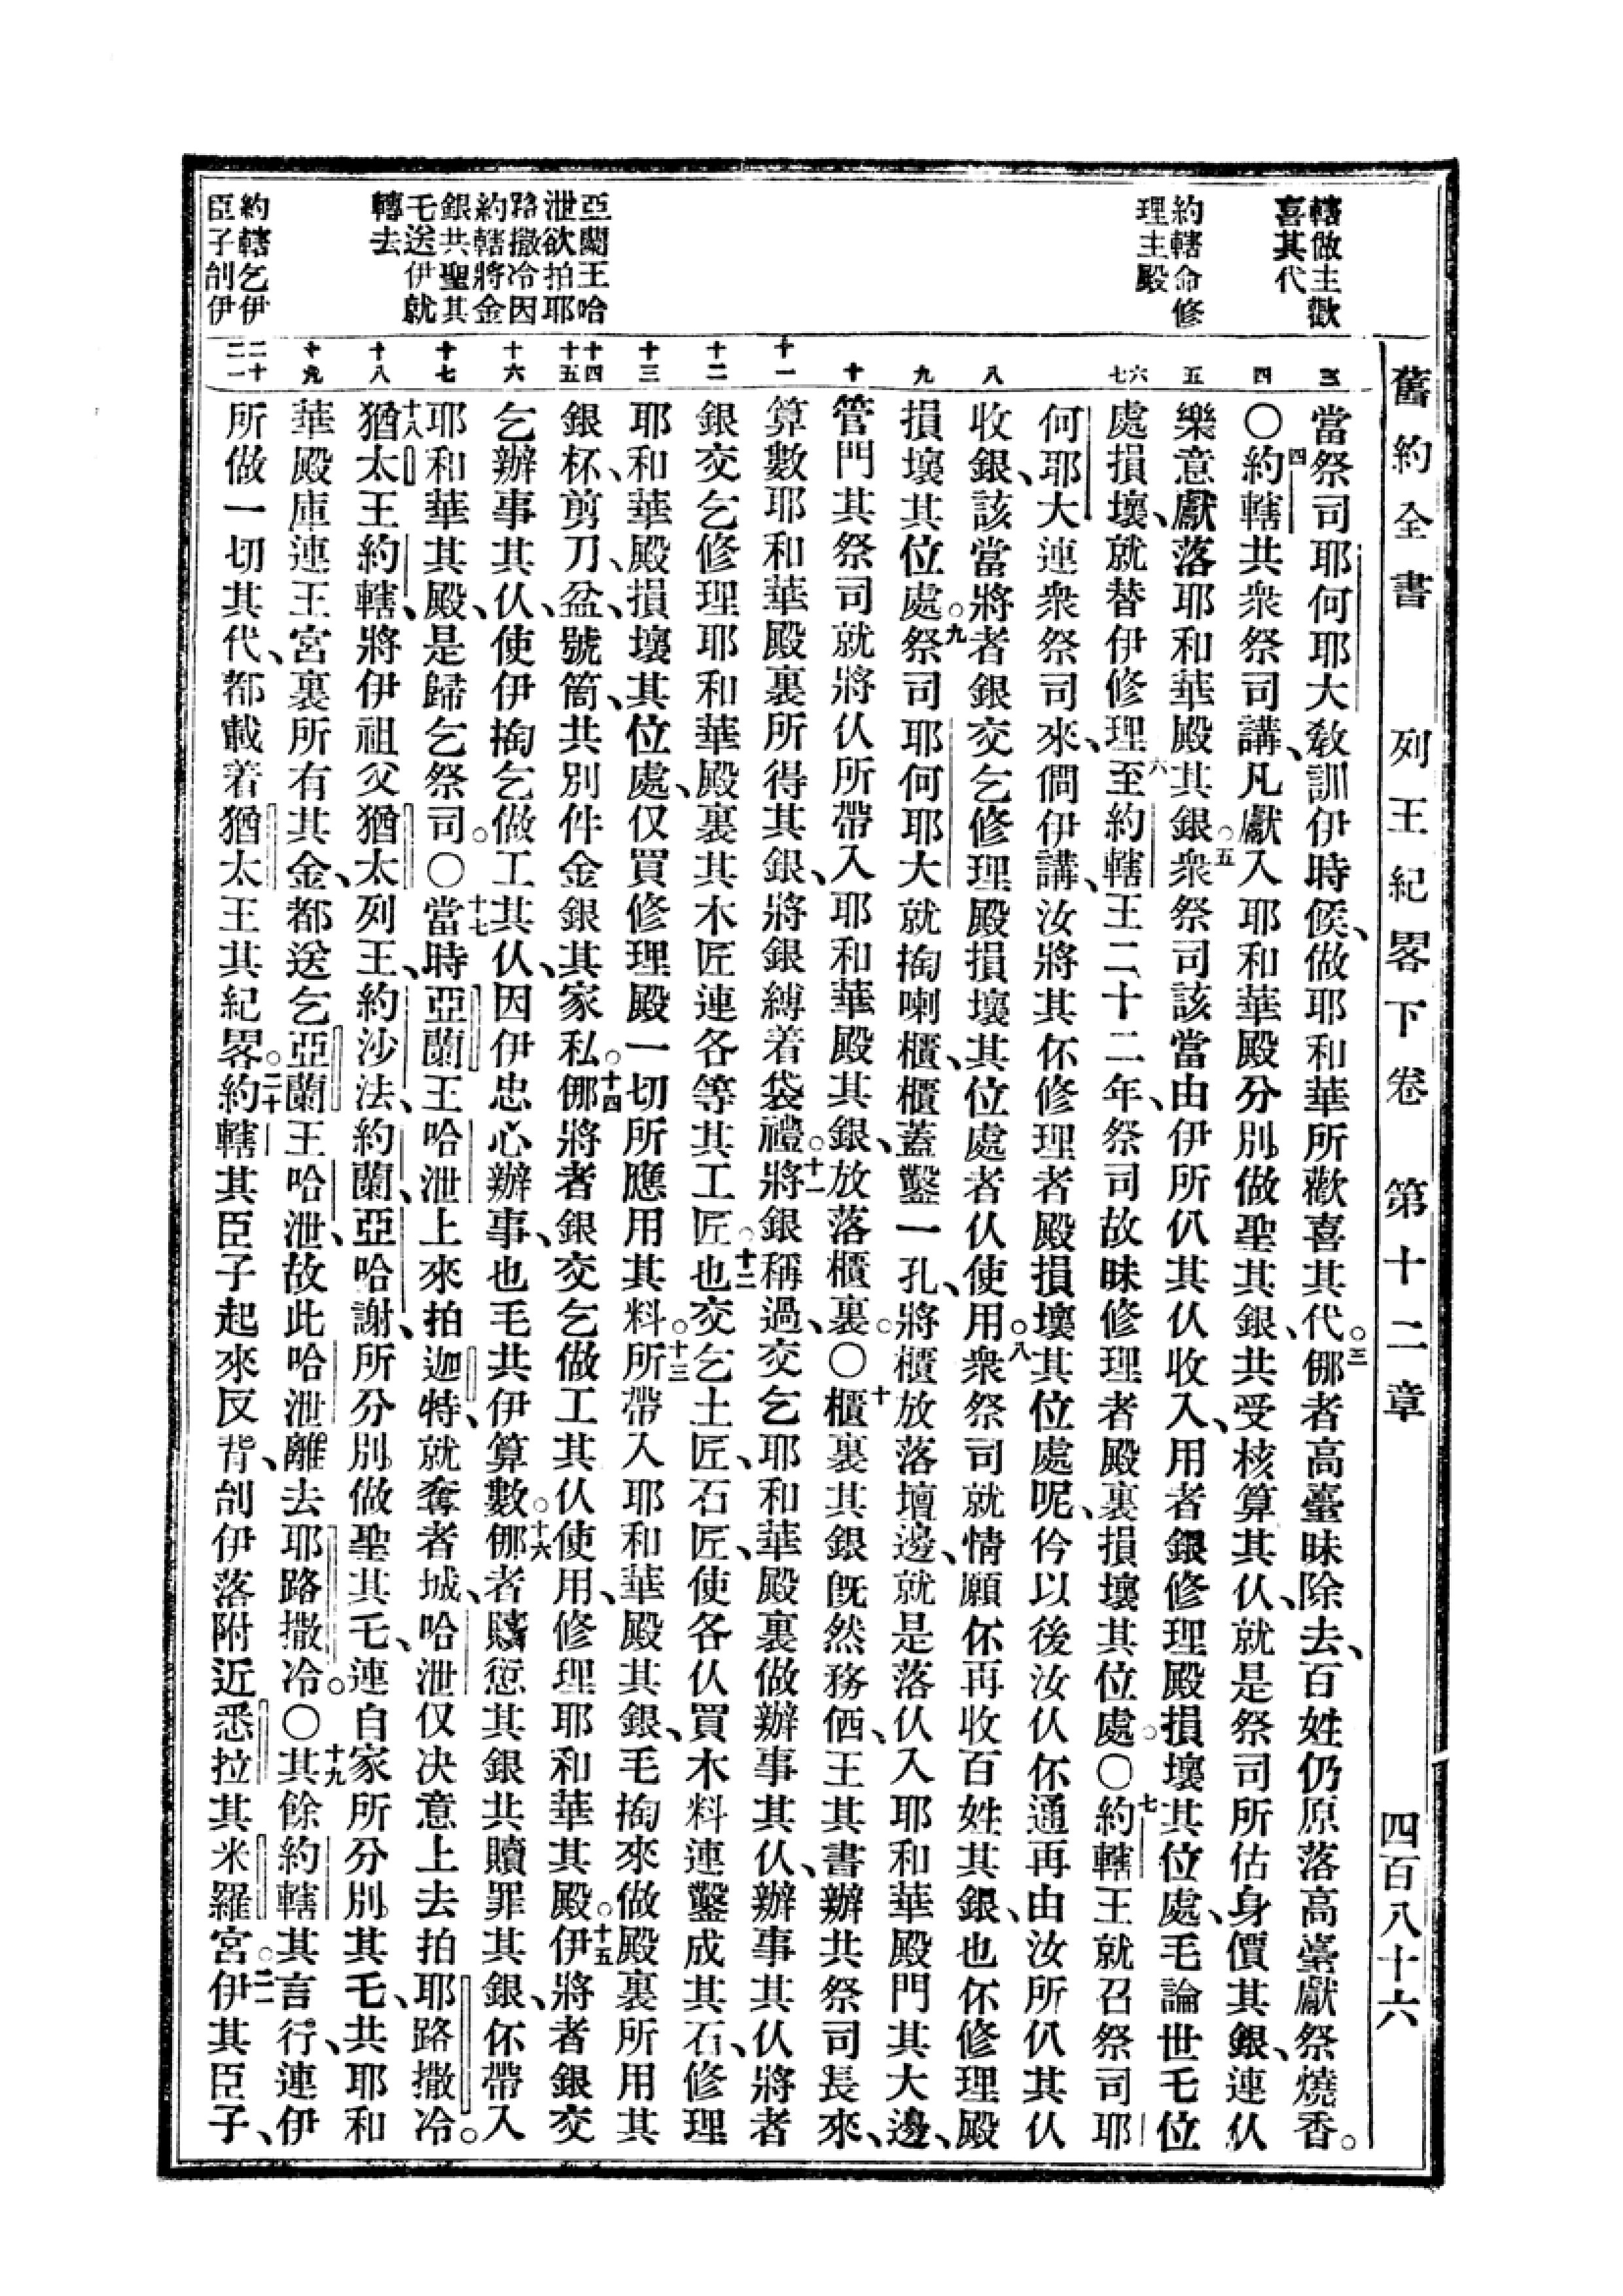 舊約全書　列王紀畧下卷　第十二章　四百八十六
轄做主歡
喜其代
約轄命修
理主殿
亞蘭王哈
泄欲拍耶
路撒冷因
約轄將金
銀共聖其
乇送伊就
轉去
約轄乞伊
臣子刣伊
三
四
五
六
七
八
九
十
十一
十二
十三
十四
十五
十六
十七
十八
十九
二十
二一
當祭司耶何耶大敎訓伊時候、做耶和華所歡喜其代。三𣍐者高臺昧除去、百姓仍原落高臺獻祭燒香。
〇四約轄共衆祭司講、凡獻入耶和華殿分別做聖其銀、共受核算其仈、就是祭司所估身價其銀、連仈
樂意獻落耶和華殿其銀。五衆祭司該當由伊所仈其仈收入、用者銀修理殿損壞其位處、毛論世乇位
處損壞、就替伊修理六至約轄王二十二年、祭司故昧修理者殿裏損壞其位處。〇七約轄王就召祭司耶
何耶大連衆祭司來、僩伊講、汝將其伓修理者殿損壞其位處呢、仱以後汝仈伓通再由汝所仈其仈
收銀、該當將者銀交乞修理殿損壞其位處者仈使用。八衆祭司就情願伓再收百姓其銀、也伓修理殿
損壞其位處。九祭司耶何耶大就掏喇櫃、櫃蓋鑿一孔、將櫃放落壇邊、就是落仈入耶和華殿門其大邊、
管門其祭司就將仈所帶入耶和華殿其銀、放落櫃裏。〇十櫃裏其銀旣然務価、王其書辦共祭司長來、
算數耶和華殿裏所得其銀、將銀縛着袋禮。十一將銀稱過、交乞耶和華殿裏做辦事其仈、辦事其仈將者
銀交乞修理耶和華殿裏其木匠連各等其工匠。十二也交乞土匠、石匠、使各仈買木料連鑿成其石、修理
耶和華殿損壞其位處、仅買修理殿一切所應用其料。十三所帶入耶和華殿其銀、毛掏來做殿裏所用其
銀杯、剪刀、盆、號筒、共別件金銀其家私。十四𣍐將者銀交乞做工其仈使用、修理耶和華其殿。十五伊將者銀交
乞辦事其仈、使伊掏乞做工其仈、因伊忠心辦事、也毛共伊算數。十六𣍐者贖愆其銀共贖罪其銀、伓帶入
耶和華其殿、是歸乞祭司。〇十七當時亞蘭王哈泄上來拍迦特、就奪者城、哈泄仅决意上去拍耶路撒冷。
十八猶太王約轄、將伊祖父猶太列王、約沙法、約蘭、亞哈謝、所分別做聖其乇、連自家所分別其乇、共耶和
華殿庫連王宮裏所有其金、都送乞亞蘭王哈泄、故此哈泄離去耶路撒冷。〇十九其餘約轄其言行、連伊
所做一切其代、都載着猶太王其紀畧。二十約轄其臣子起來反背、刣伊落附近悉拉其米羅宮。二一伊其臣子、